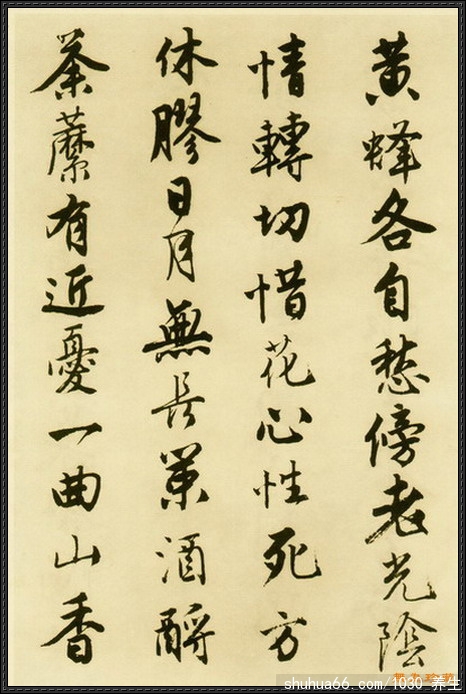 黃蜂各自愁傍老光陰
情轉切惜花心性死方
休膠日月無長策酒酹
荼蘼有近憂一曲山香
shuhua66.com/1030 养生